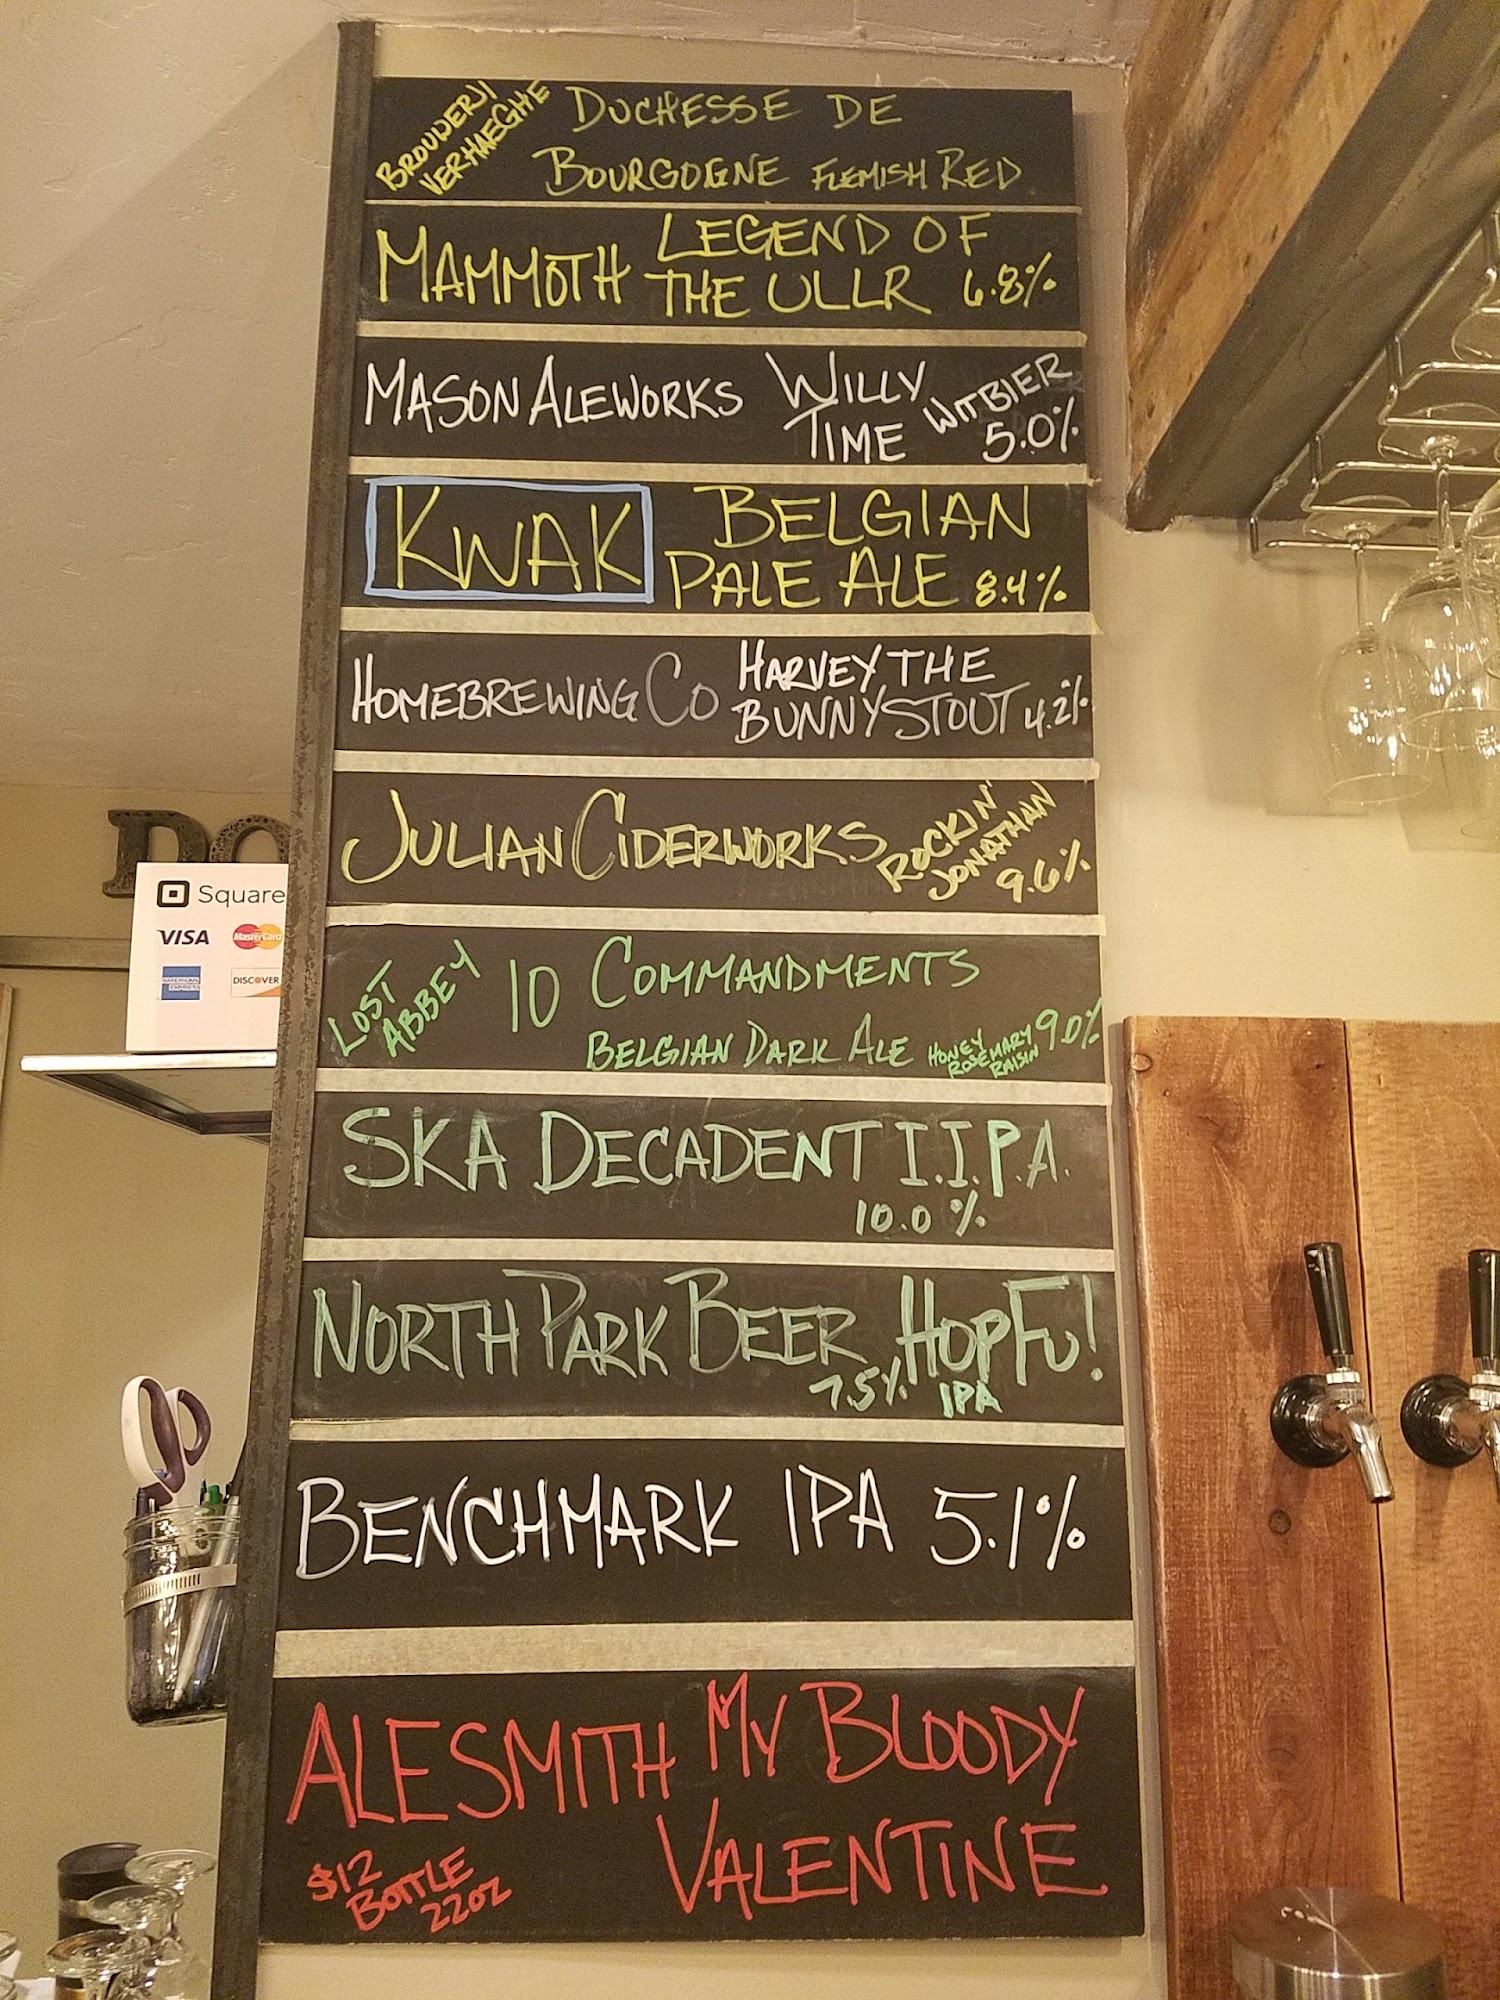 BROUWERIJ
VERHAEGHE
DUCHESSE DE
BOURGOGNE FLEMISH RED
MAMMOTH
LEGEND OF
THE ULLR 6.8%
MASON ALEWORKS
WILLY
TIME
WITBIER
5.0%
KWAK
BELGIAN
PALE ALE 8.4%
HOMEBREWING CO
HARVEY THE
BUNNY STOUT 4.2%
JULIAN CIDERWORKS
ROCKIN'
JONATHAN
9.6%
DO
Square
VISA
MasterCard
AMERICAN
EXPRESS
DISCOVER
LOST
ABBEY
10 COMMANDMENTS
BELGIAN DARK ALE
HONEY
ROSEMARY
RAISIN
9.0%
SKA DECADENT I.I.P.A.
10.0%
NORTH PARK BEER HOP FU!
7.5% IPA
BENCHMARK IPA 5.1%
ALESMITH MY BLOODY
VALENTINE
$12
BOTTLE
22OZ